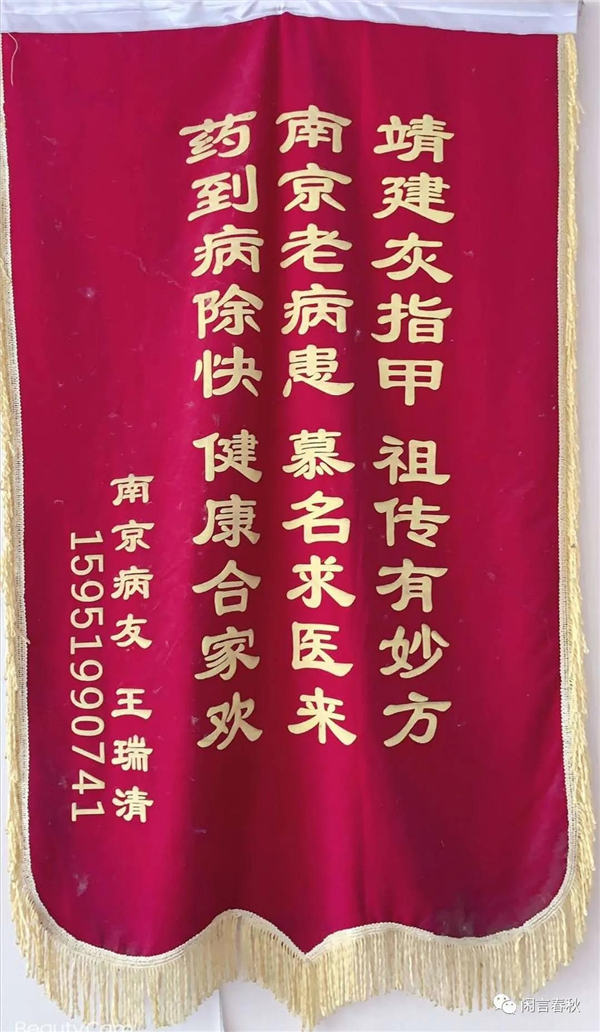 靖建灰指甲 祖传有妙方
南京老病患 慕名求医来
药到病除快 健康合家欢
南京病友 王瑞清
15951990741
闲言春秋
BeautyCam